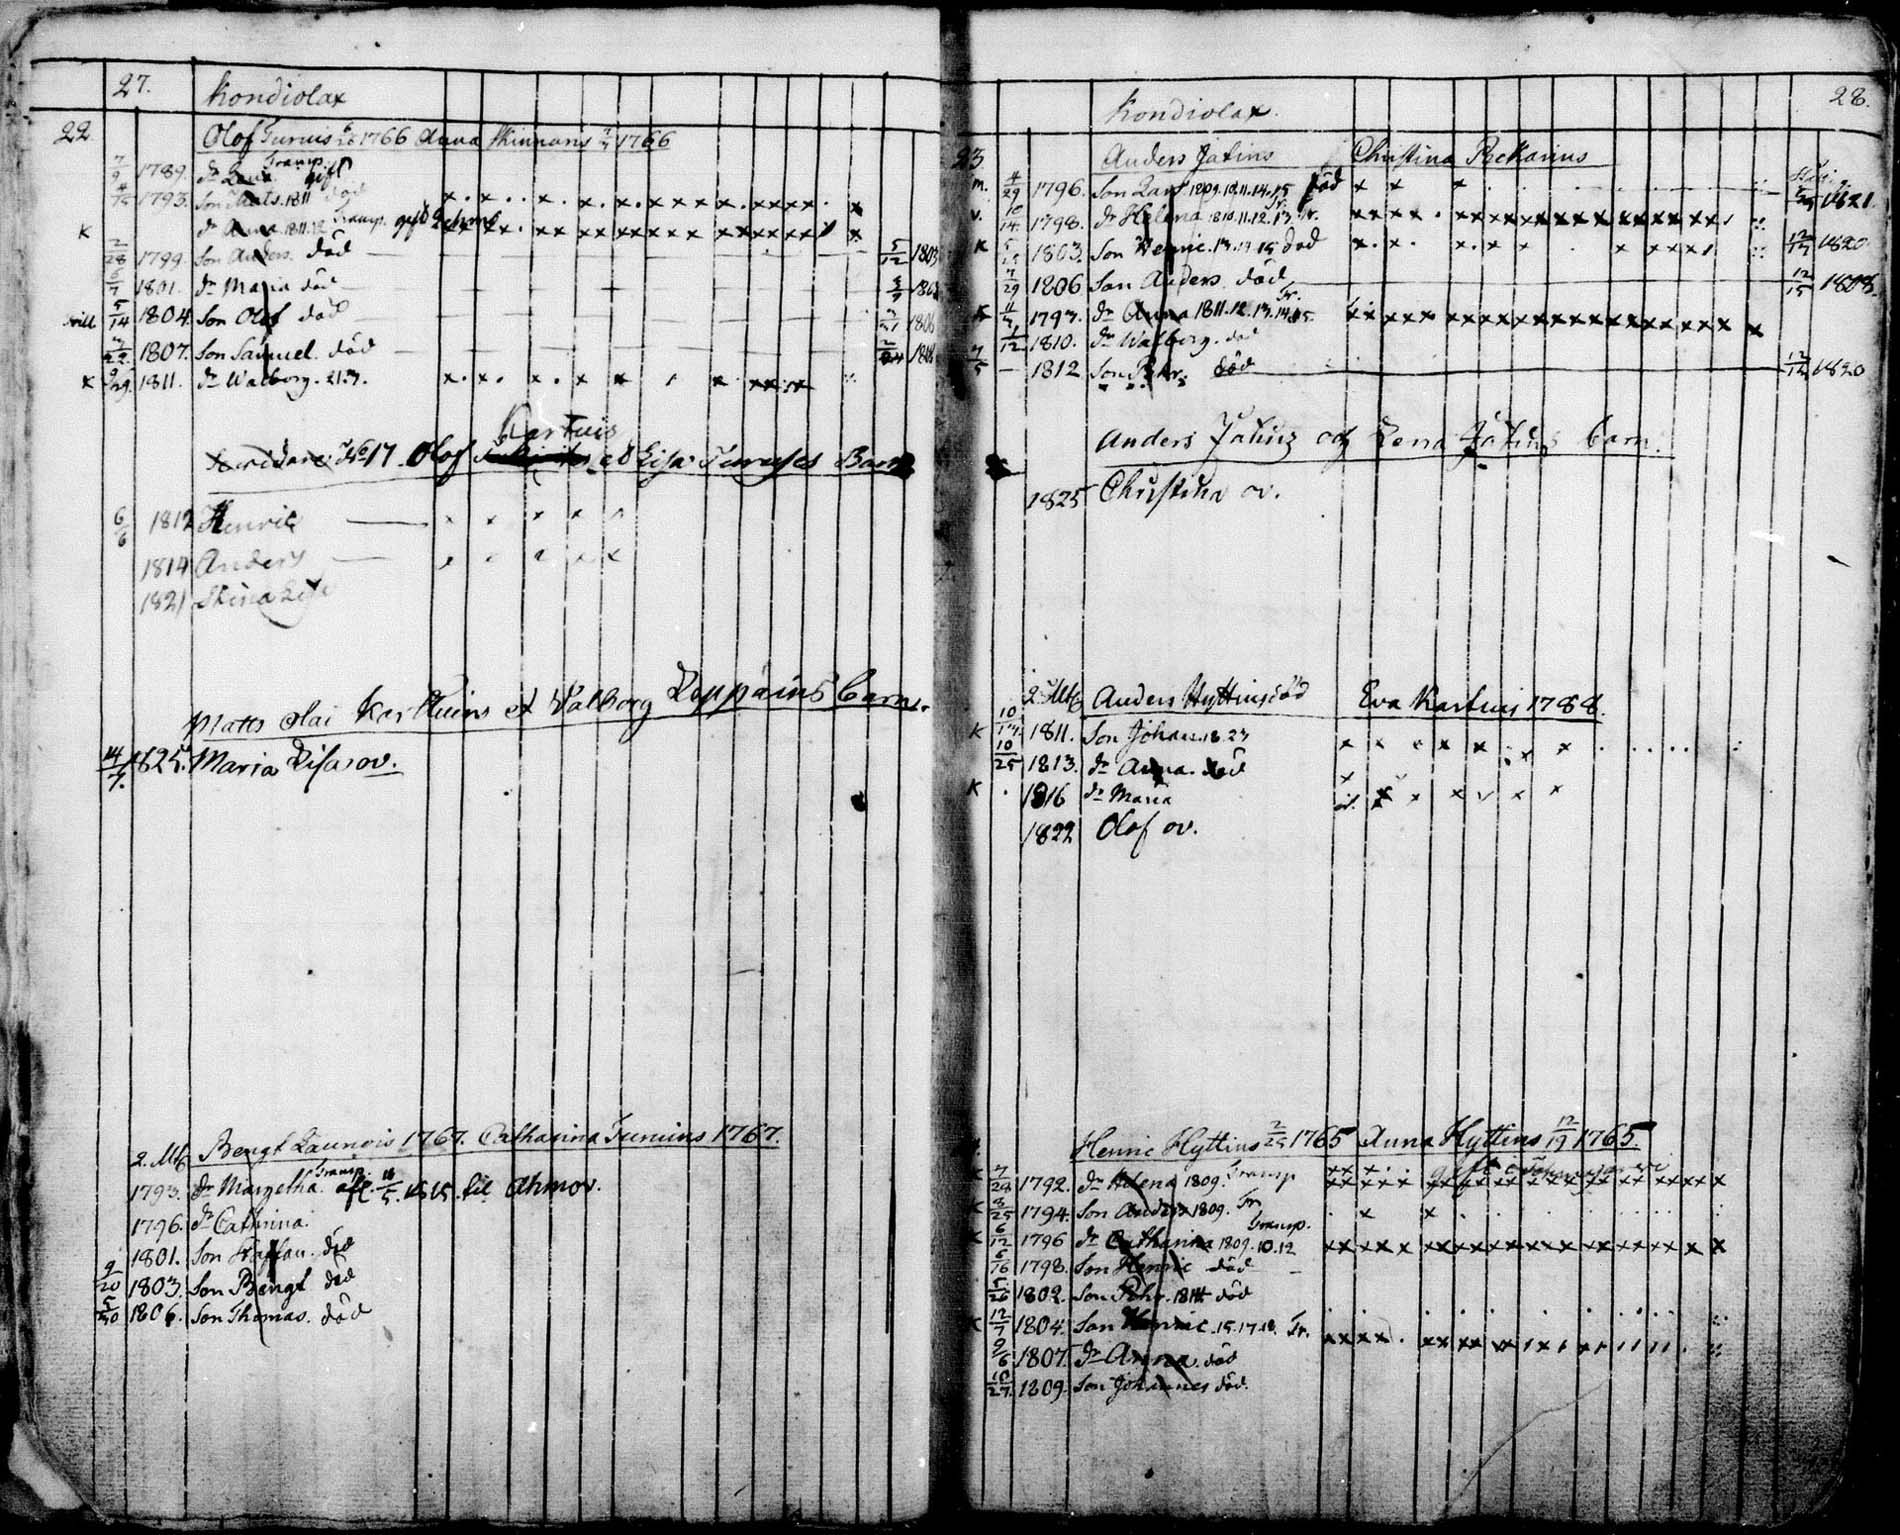 27.
Kondiolax
22
Olof Turuis 1766 Anna Kinnaris 1766
7/9 1789. dr Lena Transp. gift
4/15 1793. Son Mats. 1811 död
K dr Anna 1811.12 Transp. gift
2/28 1799. Son Anders. död 5/12 1803
6/7 1801. dr Maria död
5/14 1804. Son Olof död 1806
1807. Son Samuel. död
K 9/29 1811. dr Walborg. 21.
Kartuis
No 17 Olof et Lisa Turuses Barn
6/6 1812 Henric
1814 Anders
1821 Stina Lisa
Matts Olai Karttuins et Valborg Leppäins barn.
14/7. 1825. Maria Lisa ov.
2. Mtl Bengt Launois 1767. Catharina Turuins 1767.
1793. dr Margetha. Transp. afl. 1815. til Ahmov.
1796. dr Cathrina.
1801. Son Staffan. död
9/20 1803. Son Bengt död
5/30 1806. Son Thomas. död
28.
Kondiolax.
23
Anders Jatins Christina Rekarius
m. 4/29 1796. Son Lars 1809.10.11.14.15 död 1821.
v. 10/14 1798. dr Helena 1810.11.12.13. Tr.
K 1803. Son Henric. 13.14.15 död 12/17 1820
7/29 1806 Son Anders död 12/15 1808.
K 1793. dr Anna 1811.12.13.14.15. Tr.
1/12 1810. dr Walborg. död
7/5 1812 Son Pehr. död 12/12 1820
Anders Jatins og Lena Jatins barn.
1825 Christina ov.
2. Mtl Anders Hyttins död Eva Kartuis 1788.
K 10/17. 1811. Son Johan. 18.23
10/25 1813. dr Anna. död
K 1816 dr Maria
1822 Olof ov.
Henric Hyttins 2/25 1765 Anna Hyttins 12/19 1765.
K 7/28 1792. dr Helena 1809. Transp gift
K 8/25 1794. Son Anders 1809. Tr
K 6/12 1796 dr Catharina 1809.10.12 Transp.
6/16 1798. Son Henric död
5/26 1802. Son Pehr. 1814 död
K 12/7 1804. Son Henric. 15.17.18. Tr.
9/6 1807. dr Anna. död
10/27. 1809. Son Johannes död.